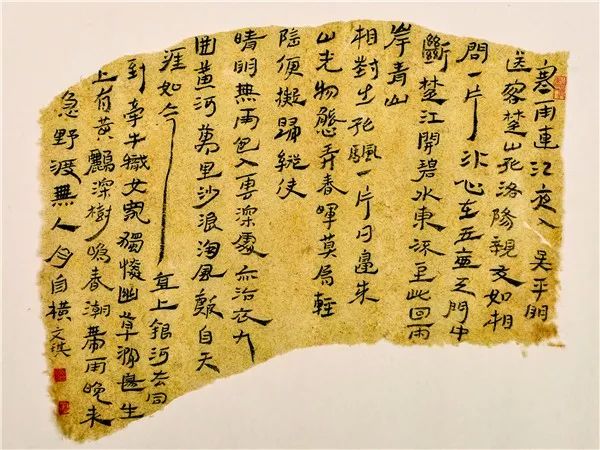 寒雨連江夜入 吳平明
送客楚山孤洛陽親友如相
問一片冰心在玉壺天門中
斷楚江開碧水東流至此回兩
岸青山
相對出孤颿一片日邊來
山光物態弄春暉莫爲輕
陰便擬歸縱使
晴明無雨色入雲深處亦沾衣九
曲黃河萬里沙浪淘風簸自天
涯如今 直上銀河去同
到牽牛織女家獨憐幽草澗邊生
上有黃鸝深樹鳴春潮帶雨晚來
急野渡無人舟自橫文淇